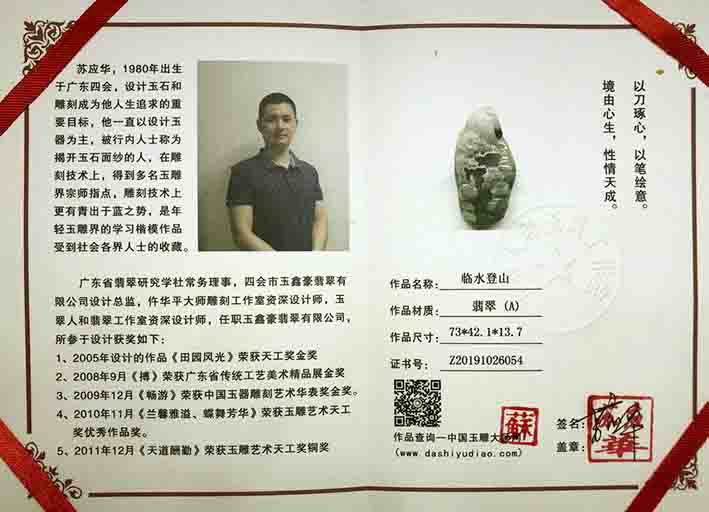 苏应华，1980年出生
于广东四会，设计玉石和
雕刻成为他人生追求的重
要目标，他一直以设计玉
器为主，被行内人士称为
揭开玉石面纱的人，在雕
刻技术上，得到多名玉雕
界宗师指点，雕刻技术上
更有青出于蓝之势，是年
轻玉雕界的学习楷模作品
受到社会各界人士的收藏。
广东省翡翠研究学社常务理事，四会市玉鑫豪翡翠有
限公司设计总监，仵华平大师雕刻工作室资深设计师，玉
翠人和翡翠工作室资深设计师，任职玉鑫豪翡翠有限公司，
所参与设计获奖如下：
1、2005年设计的作品《田园风光》荣获天工奖金奖
2、2008年9月《搏》荣获广东省传统工艺美术精品展金奖
3、2009年12月《畅游》荣获中国玉器雕刻艺术华表奖金奖。
4、2010年11月《兰馨雅溢、蝶舞芳华》荣获玉雕艺术天工
奖优秀作品奖。
5、2011年12月《天道酬勤》荣获玉雕艺术天工奖铜奖
以刀琢心，以笔绘意。
境由心生，性情天成。
作品名称：临水登山
作品材质：翡翠 (A)
作品尺寸：73*42.1*13.7
证书号：Z20191026054
作品查询—中国玉雕大师网
(www.dashiyudiao.com)
蘇
签名：
盖章：